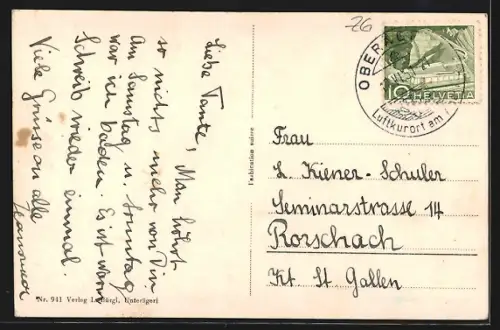 Liebe Tante, Man höhrt
so nichts mehr von Dir
Am Samstag u. Sonntag
war ich baden. Es ist warm
Schreib wieder einmal.
Viele Grüsse an alle
Nr. 941 Verlag Unterägeri
Fabrication suisse
26
10 HELVETIA
OBER
Luftkurort am
Frau
L. Kiener-Schuler
Seminarstrasse 14
Rorschach
Kt St Gallen